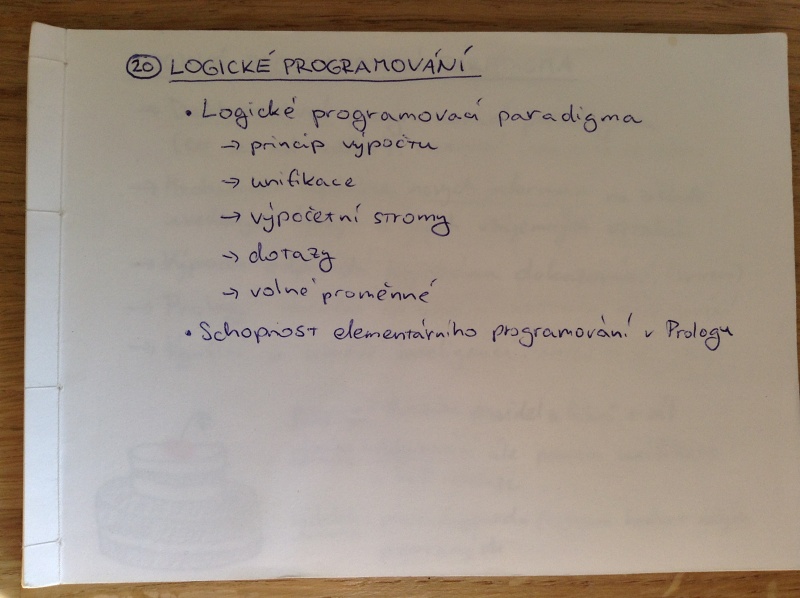 20 LOGICKÉ PROGRAMOVÁNÍ
• Logické programovací paradigma
→ princip výpočtu
→ unifikace
→ výpočetní stromy
→ dotazy
→ volné proměnné
• Schopnost elementárního programování v Prologu